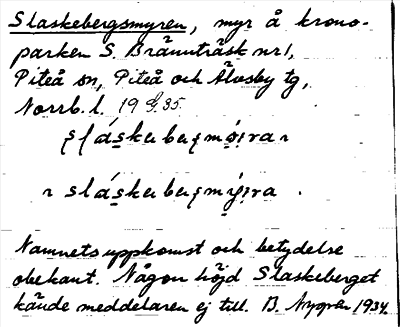 Slaskebergsmyren, myr å krono-
parken S. Brännträsk nr 1,
Piteå sn, Piteå och Älvsby tg,
Norrb. l., 19 35.
slaskebærsmøiran
slaskebærsmyira.
Namnets uppkomst och betydelse
obekant. Någon höjd Slaskeberget
kände meddelaren ej till. B. 1934.